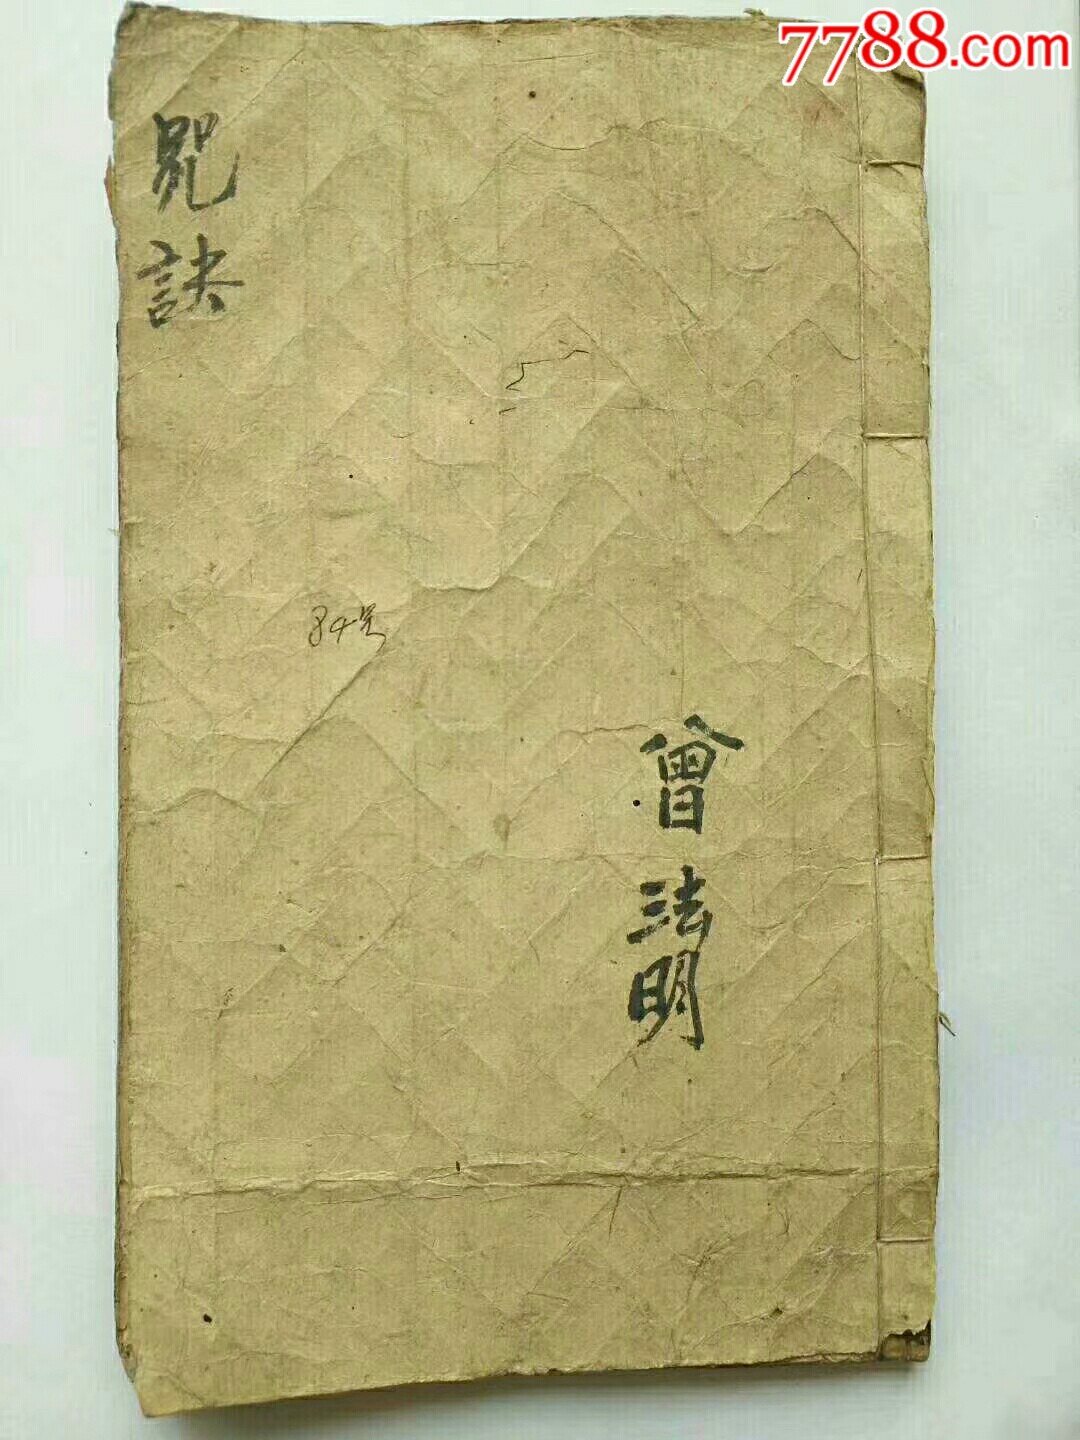 7788.com
咒訣
84号
曾法明